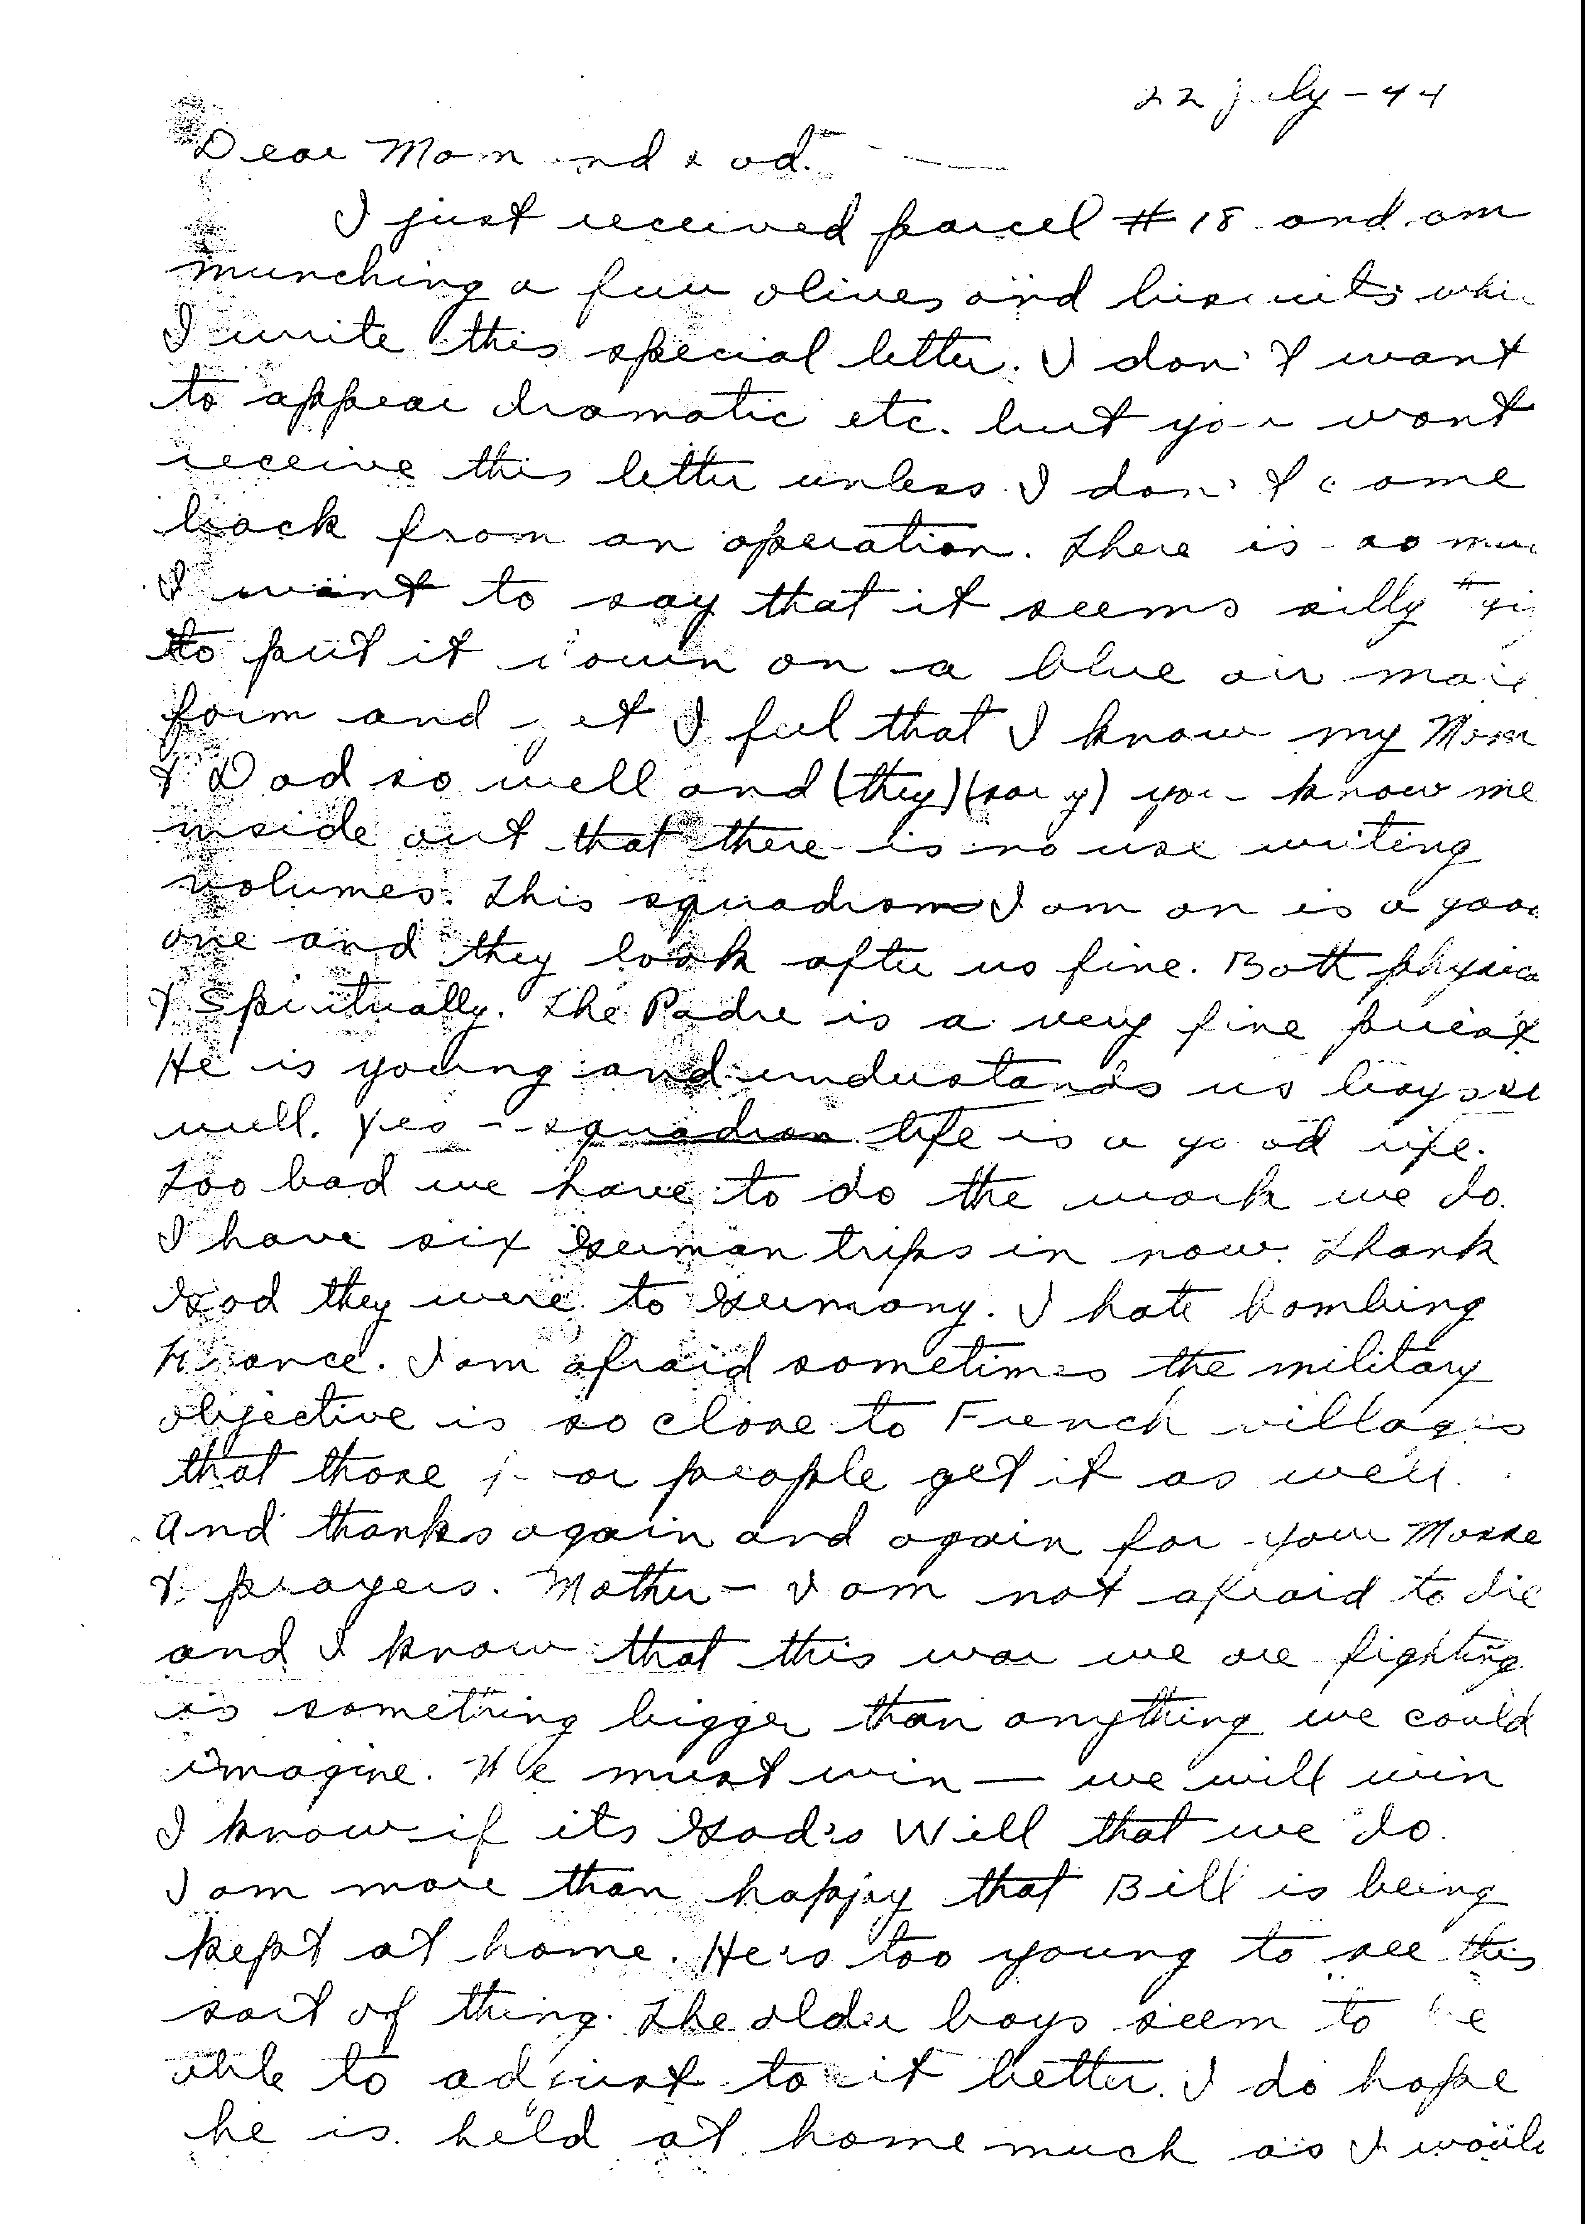 22 July - 44
Dear Mom and Dad. —
I just received parcel # 18 and am
munching a few olives and biscuits whi
I write this special letter. I don't want
to appear dramatic etc. but you wont
receive this letter unless I don't come
back from an operation. There is so muc
I want to say that it seems silly
to put it down on a blue air mail
form and yet I feel that I know my Mom
& Dad so well and (they) (sorry) you know me
inside out that there is no use writing
volumes. This squadron I am on is a good
one and they look after us fine. Both physica
& Spiritually. The Padre is a very fine priest
He is young and understands us boys
well. Yes - squadron life is a good life.
Too bad we have to do the work we do.
I have six German trips in now. Thank
God they were to Germany. I hate bombing
France. I am afraid sometimes the military
objective is so close to French villages
that those poor people get it as well.
And thanks again and again for your Masse
& prayers. Mother - I am not afraid to die
and I know that this war we are fighting
is something bigger than anything we could
imagine. We must win — we will win
I know if its God's Will that we do.
I am more than happy that Bill is being
kept at home. He is too young to see this
sort of thing. The older boys seem to be
able to adjust to it better. I do hope
he is held at home much as I would